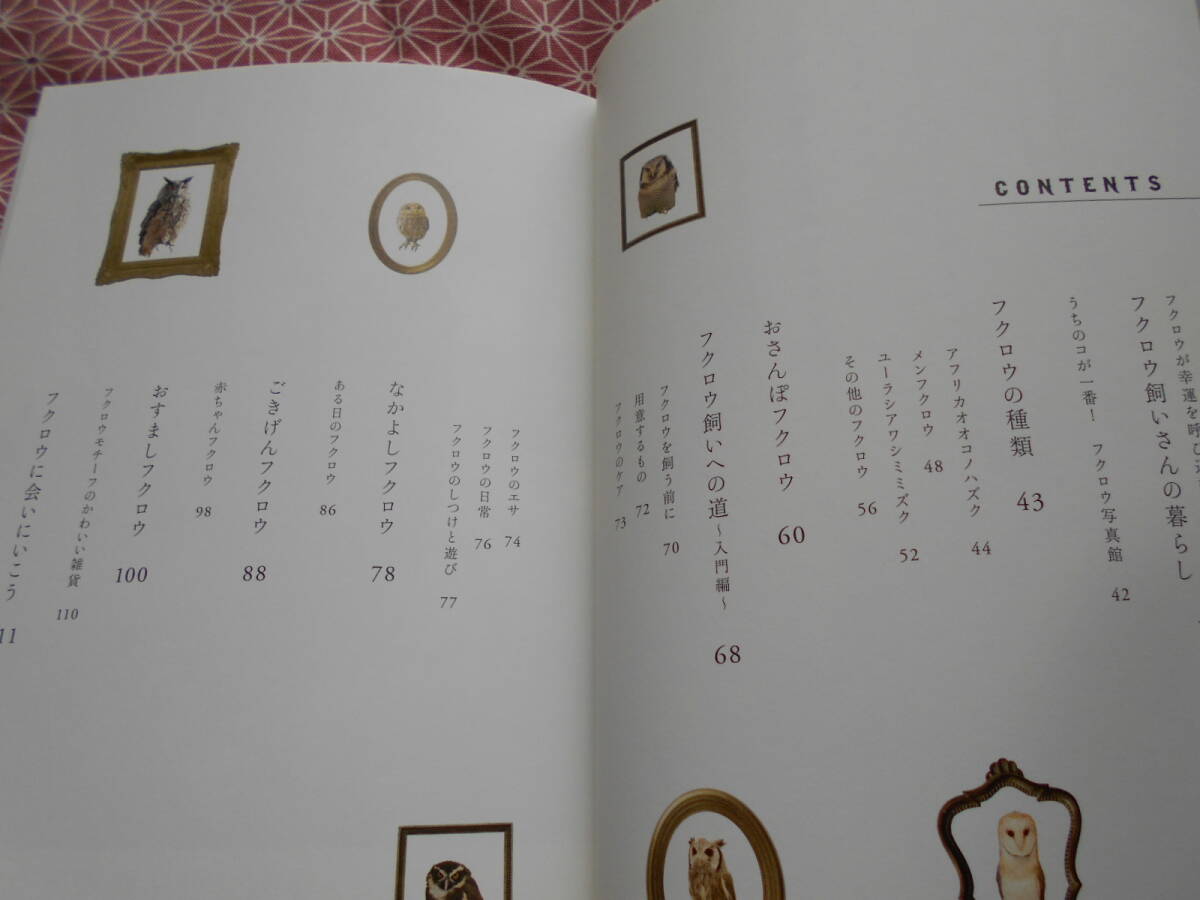 CONTENTS
フクロウが幸運を呼び
フクロウ飼いさんの暮らし
うちのコが一番！　フクロウ写真館　42
フクロウの種類　43
アフリカオオコノハズク　44
メンフクロウ　48
ユーラシアワシミミズク　52
その他のフクロウ　56
おさんぽフクロウ　60
フクロウ飼いへの道～入門編～　68
フクロウを飼う前に　70
用意するもの　72
フクロウのケア　73
フクロウのエサ　74
フクロウの日常　76
フクロウのしつけと遊び　77
なかよしフクロウ　78
ある日のフクロウ　86
ごきげんフクロウ　88
赤ちゃんフクロウ　98
おすましフクロウ　100
フクロウモチーフのかわいい雑貨　110
フクロウに会いにいこう　11